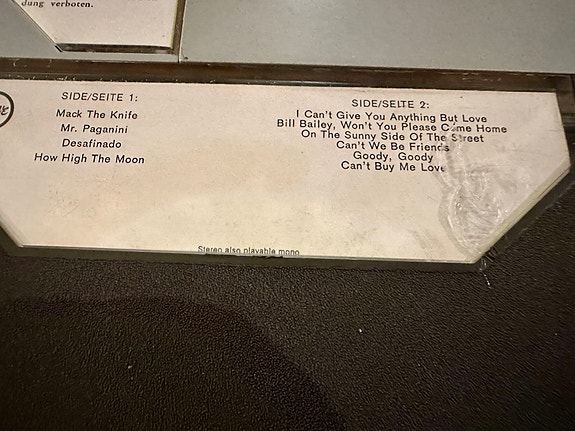 dung verboten.
SIDE/SEITE 1:
Mack The Knife
Mr. Paganini
Desafinado
How High The Moon
SIDE/SEITE 2:
I Can't Give You Anything But Love
Bill Bailey, Won't You Please Come Home
On The Sunny Side Of The Street
Can't We Be Friends
Goody, Goody
Can't Buy Me Love
Stereo also playable mono